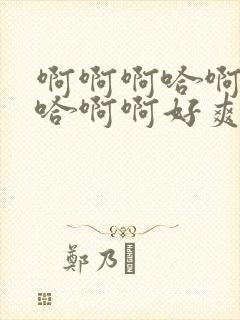 啊啊啊哈啊
哈啊啊好爽
鄭乃